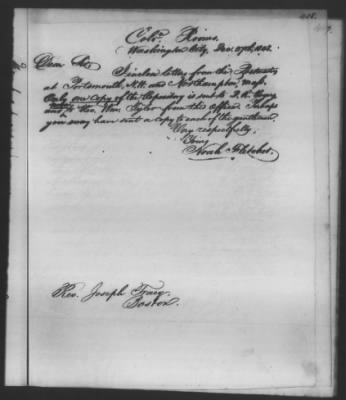 Coln. Rooms.
Washington City, Dec. 27th, 18
Dear Sir
I inclose letters from the Postmasters
at Portsmouth, N.H. and Northampton, Mass.
Only one copy of the Repository is sent
and Van from this Office. Perhaps
you may have sent a copy to each of the gentlemen.
Very respectfully,
Yours
Noah Fletcher.
Rev. Joseph Tracy,
Boston.